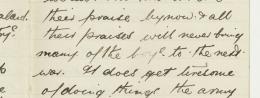 their praise by now & all
their praises will never bring
many of the boys to the next
war. It does get tiresome
of doing things the army